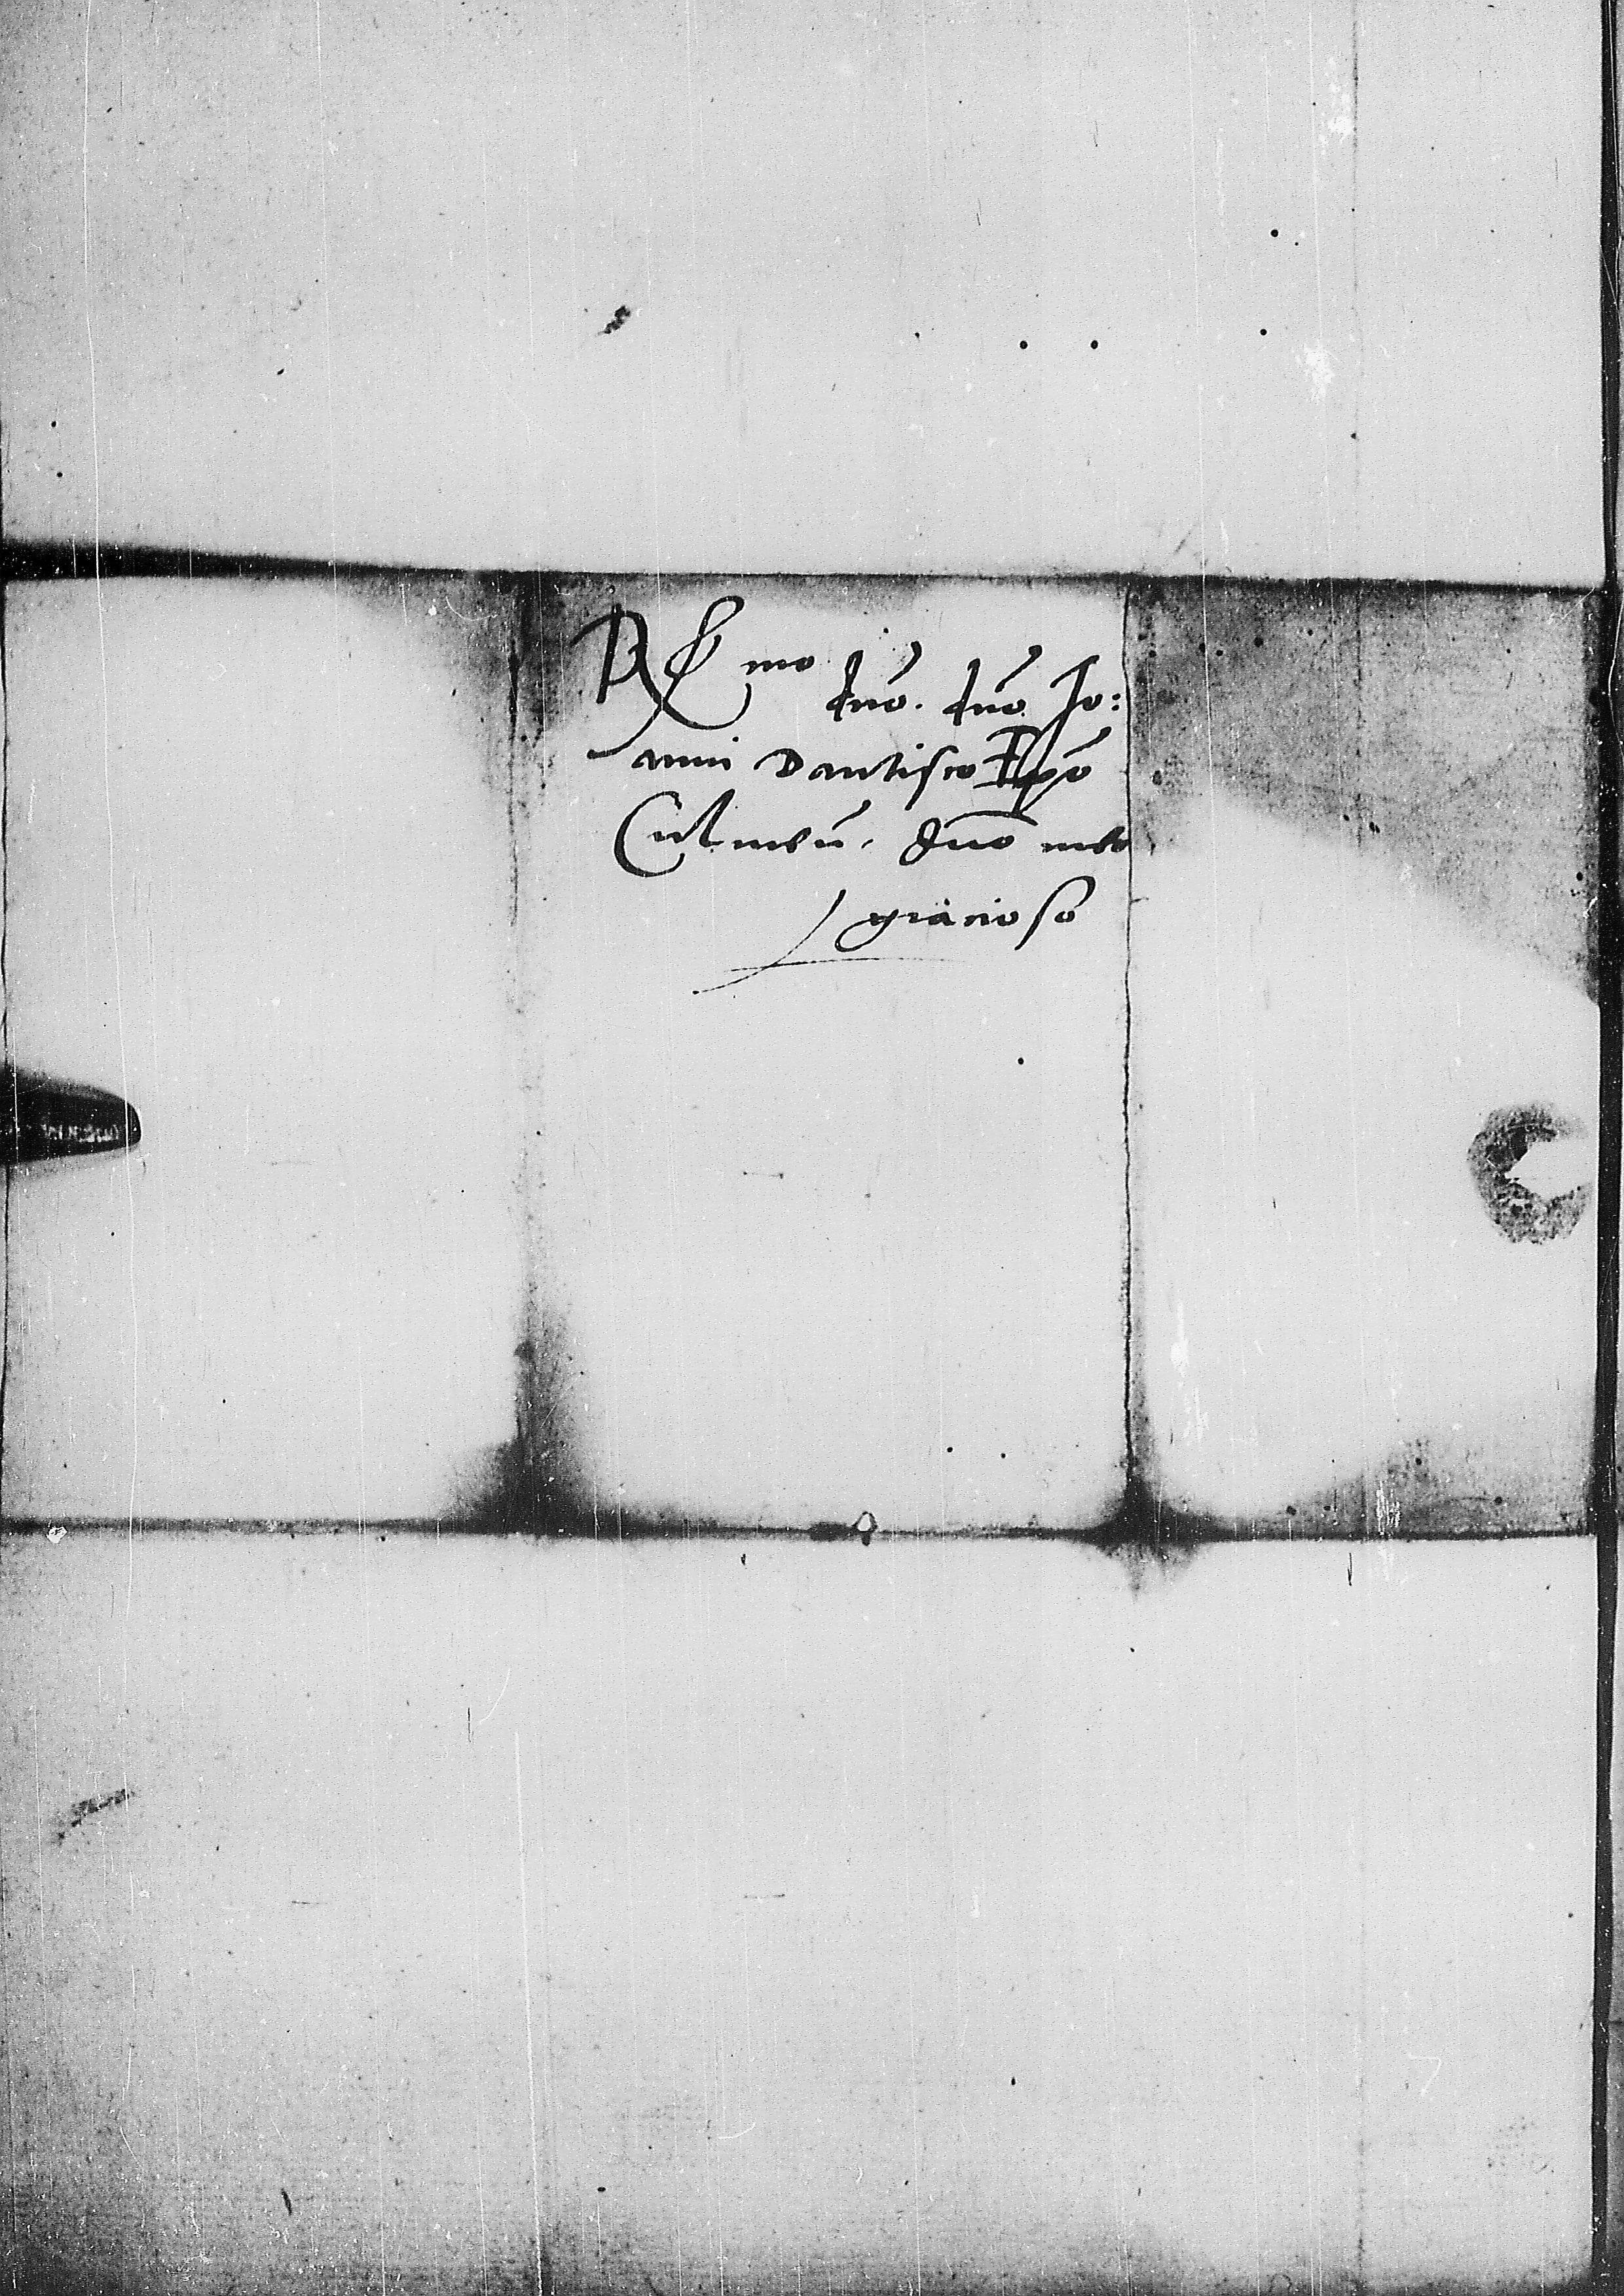 R mo
dno. dno Jo:
anni Dantisco Epo
Culmeñ. dno meo
gracioso